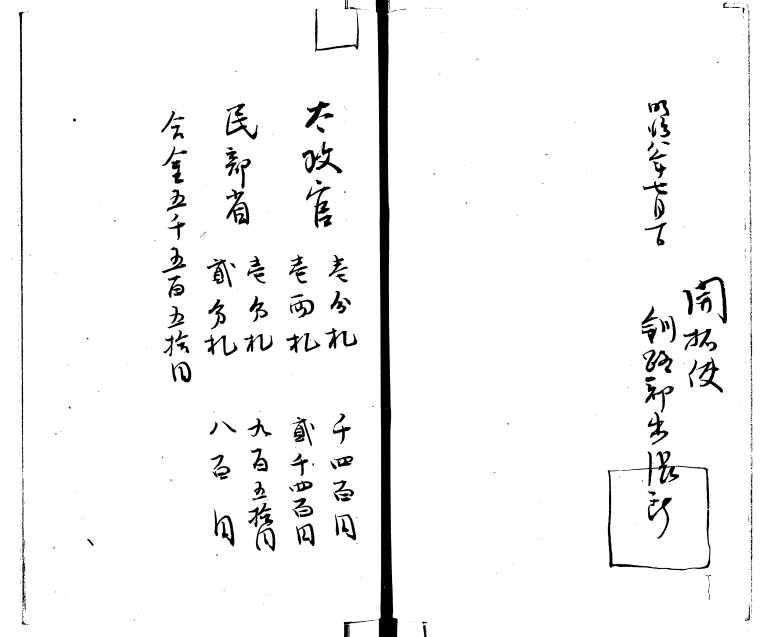 明治八年七月一日
開拓使
釧路郡出張所
太政官 壱分札 千四百円
壱両札 貳千四百円
民部省 壱分札 九百五拾円
貳分札 八百円
合金五千五百五拾円